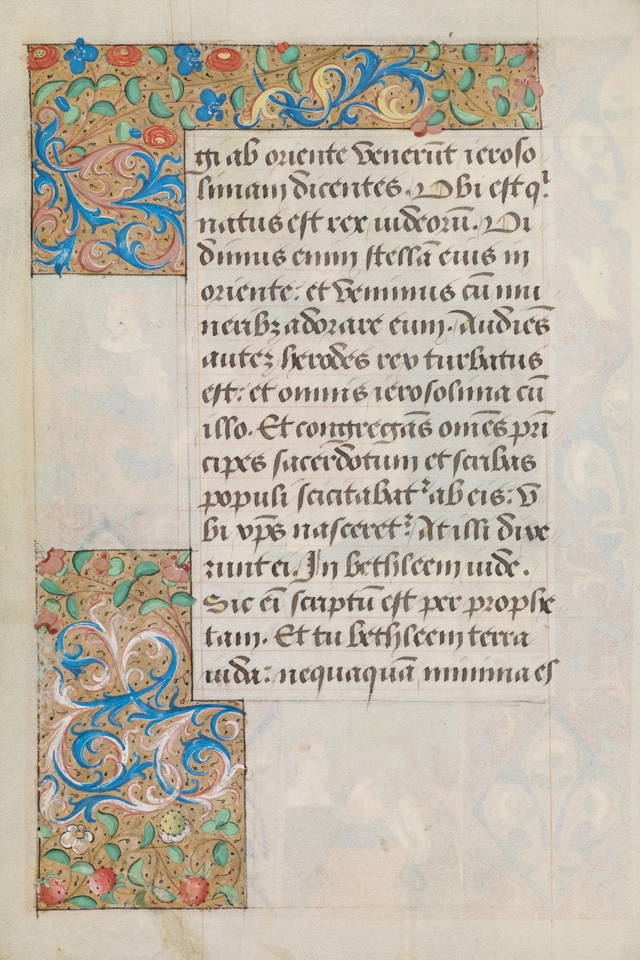 gi ab oriente venerūt ieroso
limam dicentes. Ubi est qͥ
natus est rex iudeorū. Vi
dimus enim stellā eius in
oriente: et venimus cū mu
neribꝫ adorare eum. Audiēs
autez herodes rex turbatus
est: et omnis ierosolima cū
illo. Et congregās om̄es pri
cipes sacerdotum et scribas
populi scicitabat᷑ ab eis: V
bi xp̄s nasceret᷑ At illi dixe
runt ei. In bethleem iude.
Sic ei̅ scriptū est per prophe
tam. Et tu bethleem terra
iuda: nequaquā minima es